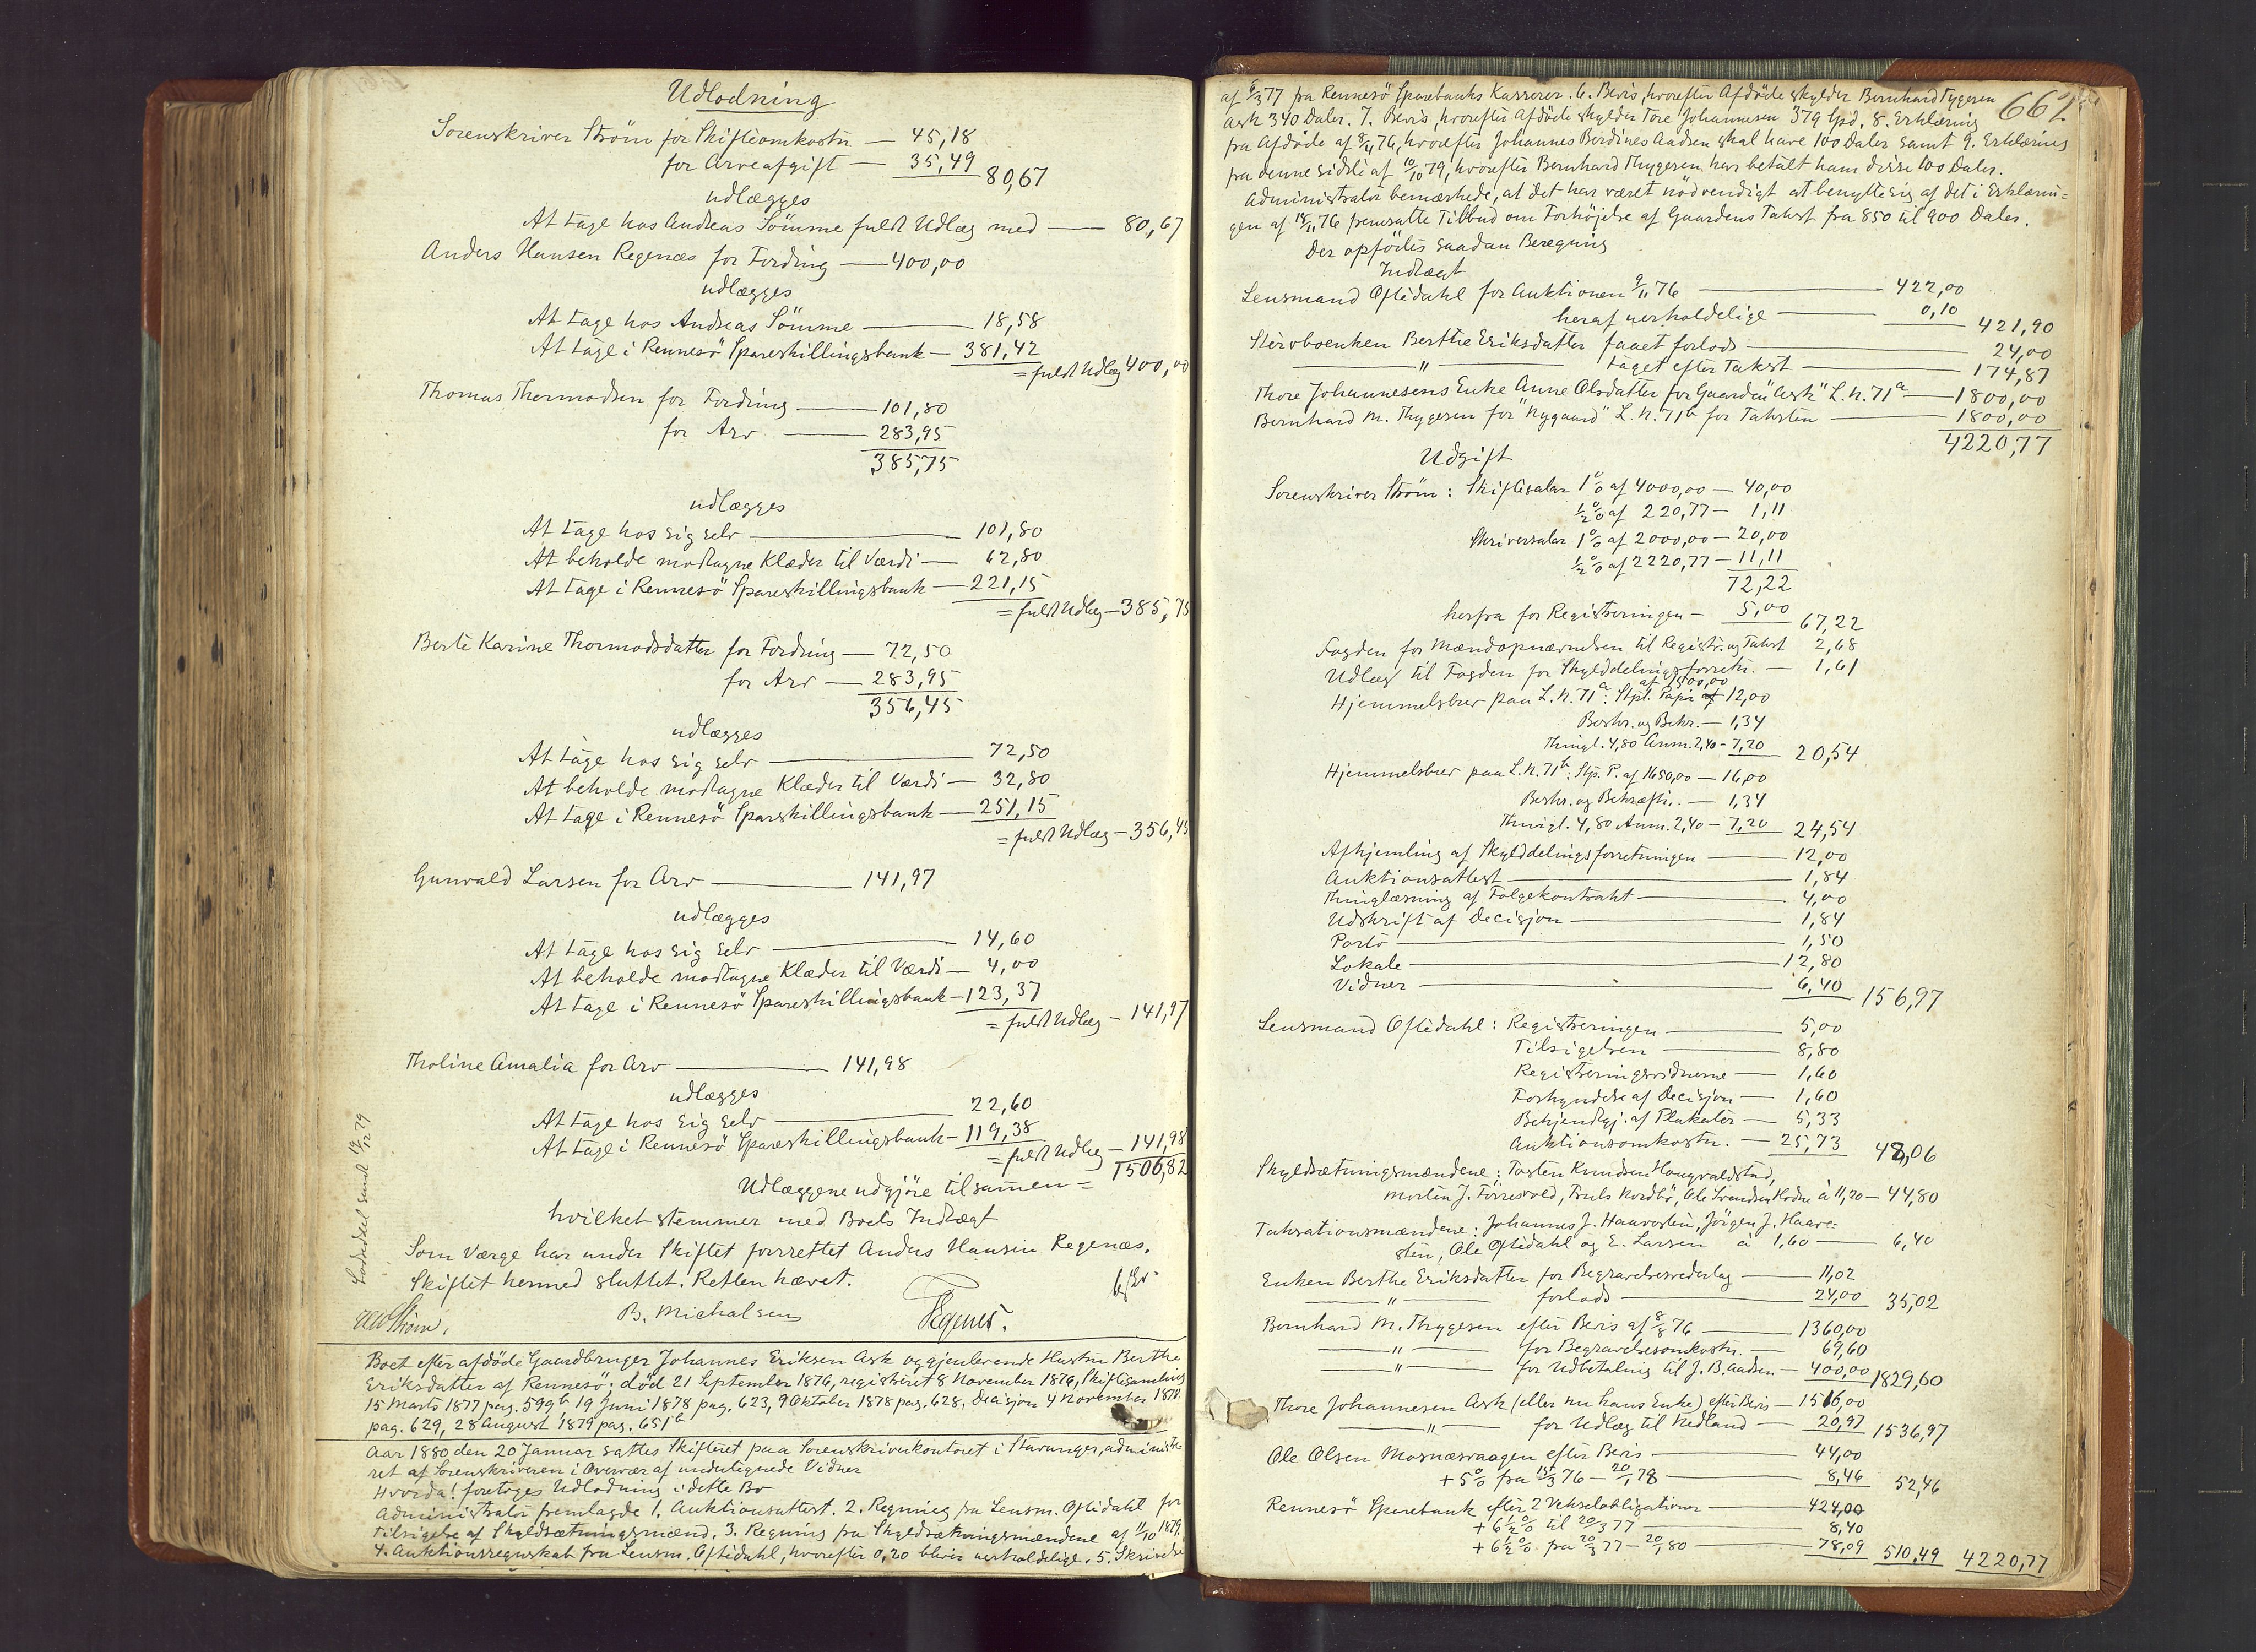 Udlodning
Sorenskriver Ström for Skifteomkostn. — 45,18
for Arveafgift — 35,49 80,67
udlægges
At tage hos Andreas Sömme fuldt Udlæg med — 80,67
Anders Hansen Regenæs for Fordring — 400,00
udlægges
At tage hos Andreas Sömme — 18,58
At tage i Rennesö Spareskillingsbank — 381,42
= fuldt Udlæg 400,00
Thomas Thormodsen for Fordring — 101,80
for Arv — 283,95
385,75
udlægges
At tage hos sig selv — 101,80
At beholde modtagne Klæder til Værdi — 62,80
At tage i Rennesö Spareskillingsbank — 221,15
= fuldt Udlæg — 385,75
Berte Karine Thormodsdatter for Fordring — 72,50
for Arv — 283,95
356,45
udlægges
At tage hos sig selv — 72,50
At beholde modtagne Klæder til Værdi — 32,80
At tage i Rennesö Spareskillingsbank — 251,15
= fuldt Udlæg — 356,45
Gunvald Larsen for Arv — 141,97
udlægges
At tage hos sig selv — 14,60
At beholde modtagne Klæder til Værdi — 4,00
At tage i Rennesö Spareskillingsbank — 123,37
= fuldt Udlæg — 141,97
Tholine Amalia for Arv — 141,98
udlægges
At tage hos sig selv — 22,60
At tage i Rennesö Spareskillingsbank — 119,38
= fuldt Udlæg — 141,98
Udlæggene udgjöre tilsammen = 1506,82
hvilket stemmer med Boets Indtægt
Som Værge har under Skiftet forrettet Anders Hansen Regenæs.
Skiftet hermed sluttet. Retten hævet.
Ström. B. Michalsen Regenes.
Lodseddel sendt 19/12 79
Boet efter afdöde Gaardbruger Johannes Eriksen Ask og gjenlevende Hustru Berthe
Eriksdatter af Rennesö; död 21 September 1876, registreret 8 November 1876, Skiftesamling
15 Marts 1877 pag. 599b 19 Juni 1878 pag. 623, 9 Oktober 1878 pag. 628, Decisjon 4 November 1878
pag. 629, 28 August 1879 pag. 651b
Aar 1880 den 20 Januar sattes Skifteret paa Sorenskriverkontoret i Stavanger, administe-
ret af Sorenskriveren i Overvær af undertegnede Vidner
Hvorda! foretoges Udlodning i dette Bo
Administrator fremlagde 1. Auktionsattest. 2. Regning fra Lensm. Oftedahl for
Tilsigelse af Skyldsætningsmænd. 3. Regning fra Skyldsætningsmændene af 11/10 1879.
4. Auktionsregnskab fra Lensm. Oftedahl, hvorefter 0,20 bliver uerholdelige. 5. Skrivelse
662
af 6/3 77 fra Rennesö Sparebanks Kasserer. 6. Bevis, hvorefter Afdöde skylder Bernhard Tygesen
Ask 340 Daler. 7. Bevis, hvorefter Afdöde skylder Tore Johannesen 379 Spd. 8. Erklæring
fra Afdöde af 8/4 76, hvorefter Johannes Berdines Aadsen skal have 100 Daler samt 9. Erklæring
fra denne sidste af 10/10 79, hvorefter Bernhard Thygesen har betalt ham disse 100 Daler.
Administrator bemærkede, at det har været nödvendigt at benytte sig af det i Erklærin-
gen af 18/11 76 fremsatte Tilbud om Forhöjelse af Gaardens Takst fra 850 til 900 Daler.
Der opförtes saadan Beregning
Indtægt
Lensmand Oftedahl for Auktionen 9/11 76 — 422,00
heraf uerholdelige — 0,10 421,90
Stervboenken Berthe Eriksdatter faaet forlods — 24,00
— " — taget efter Takst — 174,87
Thore Johannesens Enke Anne Olsdatter for Gaarden "Ask" L.N. 71a — 1800,00
Bernhard M. Thygesen for "Nygaard" L.N. 71b for Taksten — 1800,00
4220,77
Udgift
Sorenskriver Ström: Skiftesalær 1% af 4000,00 — 40,00
½% af 220,77 — 1,11
Skriversalær 1% af 2000,00 — 20,00
½% af 2220,77 — 11,11
72,22
herfra for Registreringen — 5,00 67,22
Fogden for Mændopnævnelsen til Registr. og Takst 2,68
Udlæg til Fogden for Skylddelingsforretn. — 1,61
Hjemmelsbrev paa L.N. 71a: Stpl. Papir af 1500,00 12,00
Beskr. og Bekr. — 1,34
Thingl. 4,80 Anm. 2,40 — 7,20 20,54
Hjemmelsbrev paa L.N. 71b: Stp. P. af 1650,00 — 16,00
Beskr. og Bekræftn. — 1,34
Thingl. 4,80 Anm. 2,40 — 7,20 24,54
Afhjemling af Skylddelingsforretningen — 12,00
Auktionsattest — 1,84
Thinglæsning af Folgekontrakt — 4,00
Udskrift af Decisjon — 1,84
Porto — 1,50
Lokale — 12,80
Vidner — 6,40 156,97
Lensmand Oftedahl: Registreringen — 5,00
Tilsigelsen — 8,80
Registreringsvidnerne — 1,60
Forkyndelse af Decisjon — 1,60
Bekjendtgj. af Plakater — 5,33
Auktionsomkostn. — 25,73 48,06
Skyldsætningsmændene: Tosten Knudsen Haugvaldstad,
Morten J. Förresvold, Truls Nordbö, Ole Svendsen Hodne à 11,20 — 44,80
Taksationsmændene: Johannes J. Haavesten, Jörgen J. Haave-
sten, Ole Oftedahl og E. Larsen à 1,60 — 6,40
Enken Berthe Eriksdatter for Begravelsesvederlag — 11,02
— " — forlods — 24,00 35,02
Bernhard M. Thygesen efter Bevis af 8/8 76 — 1360,00
— " — for Begravelsesomkostn. — 69,60
— " — for Udbetaling til J. B. Aadsen — 400,00 1829,60
Thore Johannesen Ask (eller nu hans Enke) efter Bevis — 1516,00
— " — for Udlæg til Nedland — 20,97 1536,97
Ole Olsen Mosnæsvaagen efter Bevis — 44,00
+ 5% fra 15/3 76 – 20/1 78 — 8,46 52,46
Rennesö Sparebank efter 2 Vekselobligationer — 424,00
+ 6½% til 20/3 77 — 8,40
+ 6½% fra 20/3 77 – 20/1 80 — 78,09 510,49 4220,77